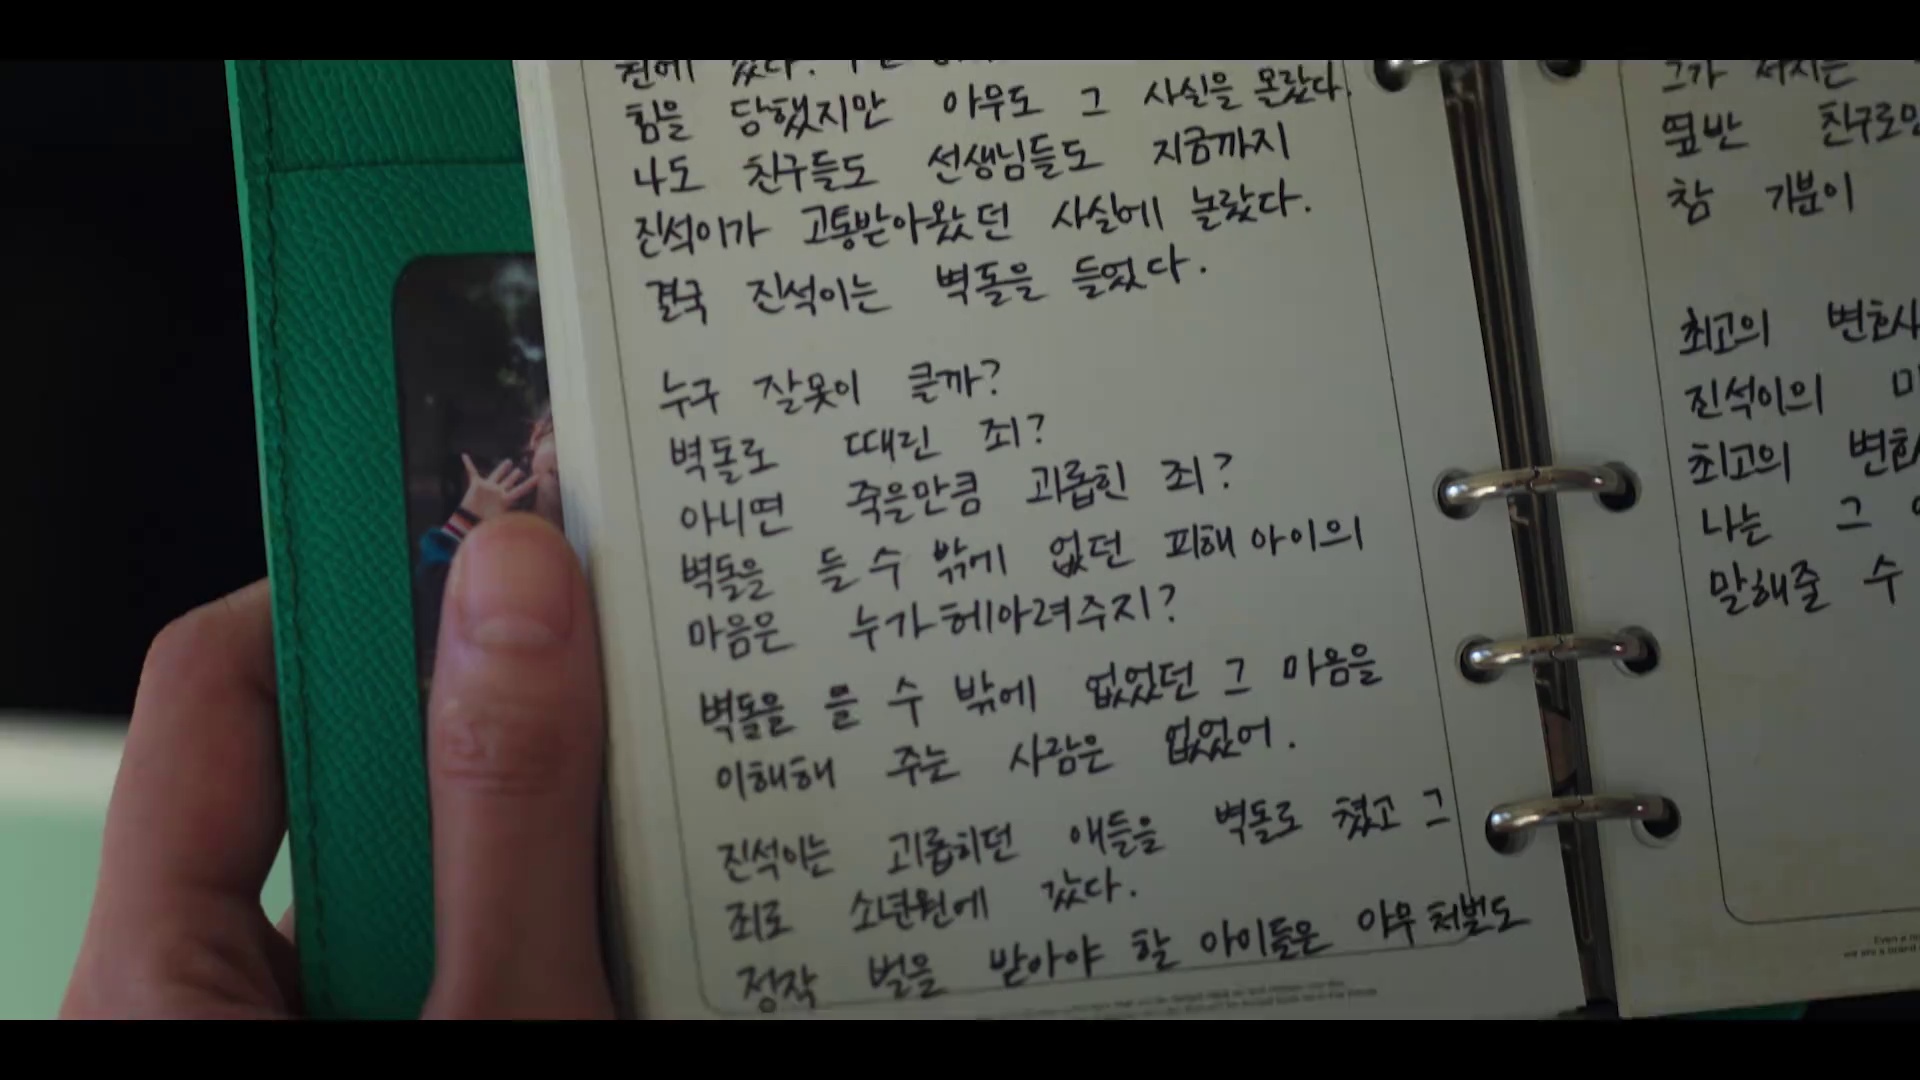 힘을 당했지만 아무도 그 사실을 몰랐다.
나도 친구들도 선생님들도 지금까지
진석이가 고통받아왔던 사실에 놀랐다.
결국 진석이는 벽돌을 들었다.
누구 잘못이 클까?
벽돌로 때린 죄?
아니면 죽을만큼 괴롭힌 죄?
벽돌을 들 수 밖에 없던 피해 아이의
마음은 누가 헤아려주지?
벽돌을 들 수 밖에 없었던 그 마음을
이해해 주는 사람은 없었어.
진석이는 괴롭히던 애들을 벽돌로 쳤고 그
죄로 소년원에 갔다.
정작 벌을 받아야 할 아이들은 아무 처벌도
그가 저지른
옆반 친구로
참 기분이
최고의 변호사
진석이의
최고의
나는 그
말해줄 수